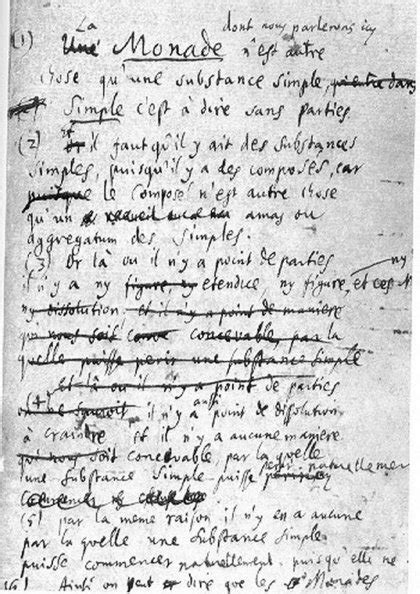 La dont nous parlerons icy
(1) Une Monade n'est autre
chose qu'une substance simple, qui entre dans
Simple c'est à dire sans parties
(2) et il faut qu'il y ait des substances
simples, puisqu'il y a des composés, car
puisque le composé n'est autre chose
qu'un amas ou
aggregatum des simples.
(3) Or là ou il n'y a point de parties ny
il n'y a ny figure, ny etendue, ny figure, et
ny dissolution. et il n'y a point de maniere
qui nous soit concevable, par la
quelle puisse perir une substance simple
et là ou il n'y a point de parties
(4) on ne sauroit il n'y a aussi point de dissolution
à craindre et il n'y a aucune maniere
qui nous soit concevable, par la quelle
une substance simple puisse perir naturellement
commencer
(5) par la meme raison il n'y en a aucune
par la quelle une substance simple
puisse commencer naturellement. puisqu'elle ne
(6) Ainsi on peut dire que les Monades